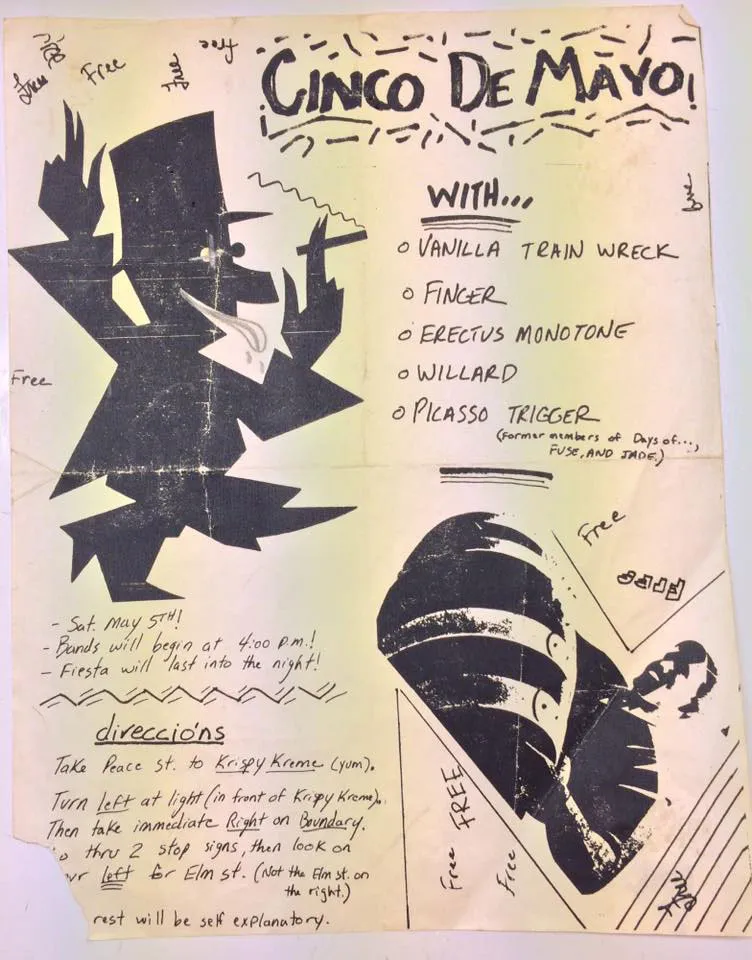 Free
Free
Free
Free
¡CINCO DE MAYO!
WITH...
Free
o VANILLA TRAIN WRECK
o FINGER
o ERECTUS MONOTONE
o WILLARD
o PICASSO TRIGGER
(Former members of Days of...,
FUSE, AND JADE.)
Free
Free
FREE
- Sat. May 5TH!
- Bands will begin at 4:00 p.m.!
- Fiesta will last into the night!
direccións
Take Peace st. to Krispy Kreme (yum).
Turn Left at light (in front of Krispy Kreme).
Then take immediate Right on Boundary.
thru 2 stop signs, then look on
left for Elm st. (Not the Elm st. on
the right.)
rest will be self explanatory.
FREE
Free
Free
Free